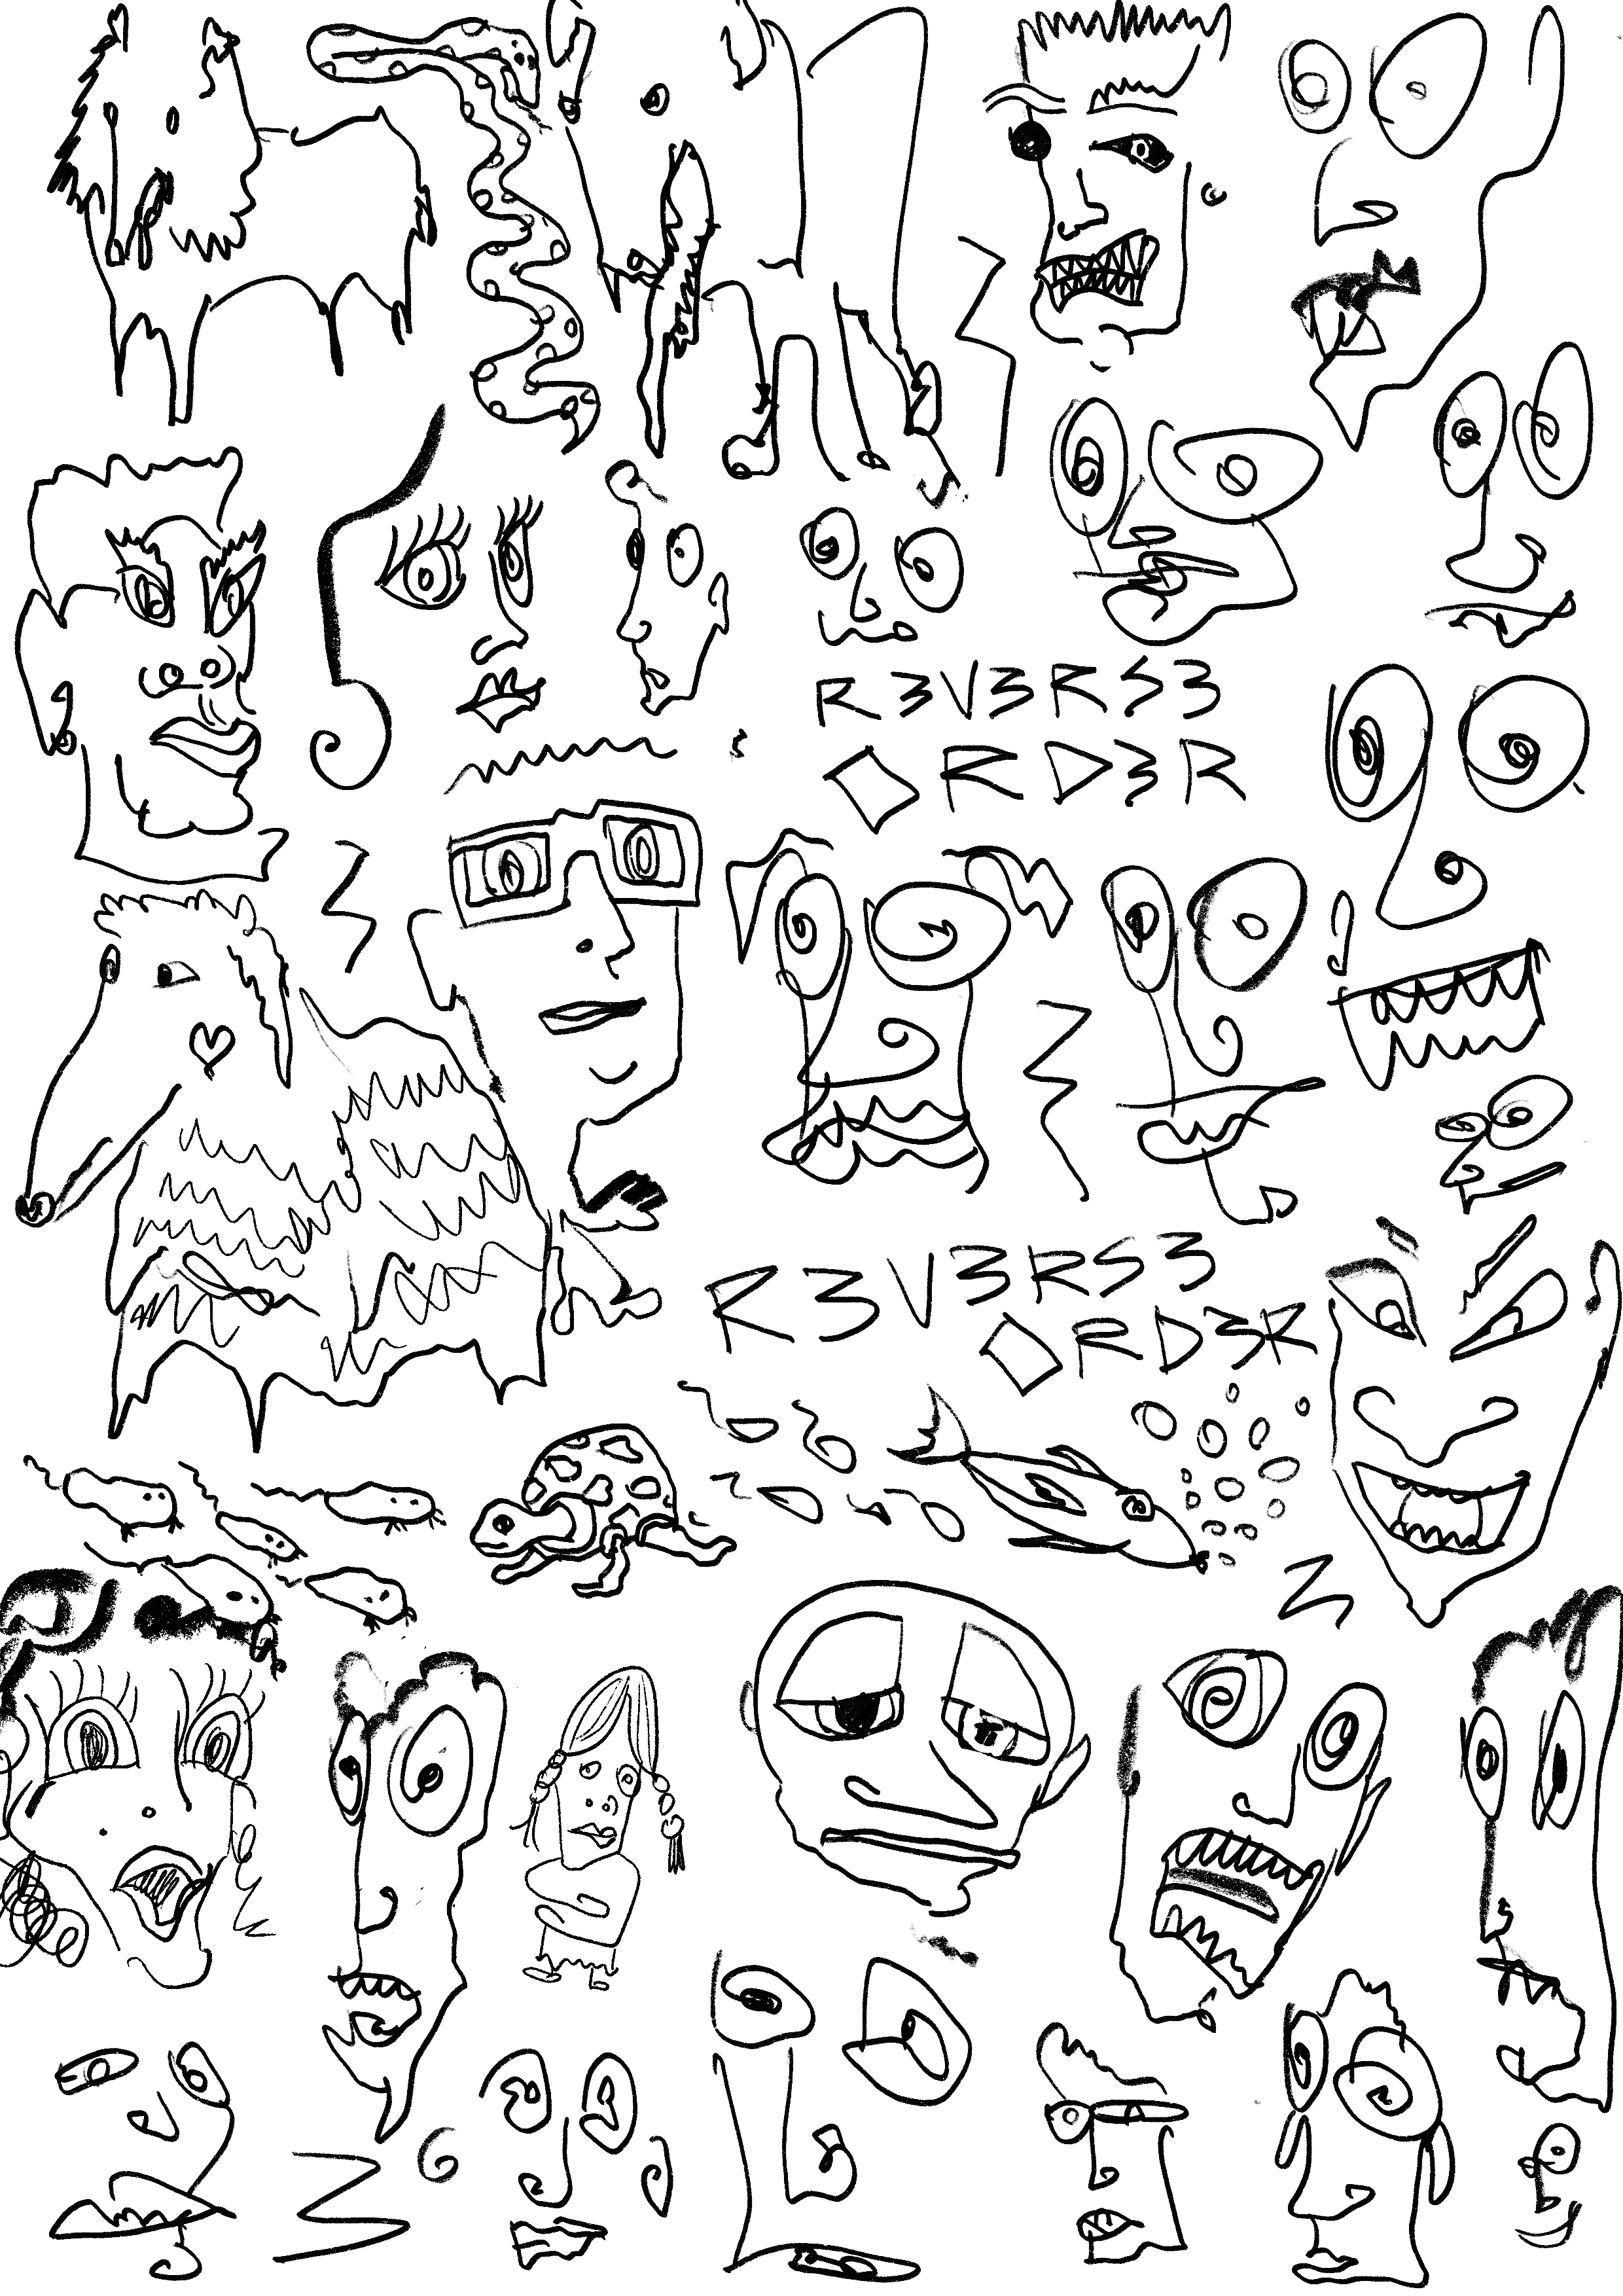 R3V3RS3
◇RD3R
R3V3RS3
◇RD3R